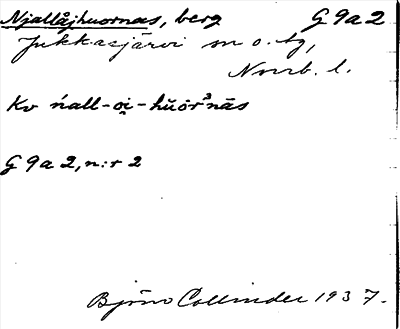 Njallåjhuornas, berg G 9a 2
Jukkasjärvi sn o. tg,
Norrb. l.
Kv ńall-oi̯-hŭörᵌnās
G 9a 2, n:r 2
Björn Collinder 1937.